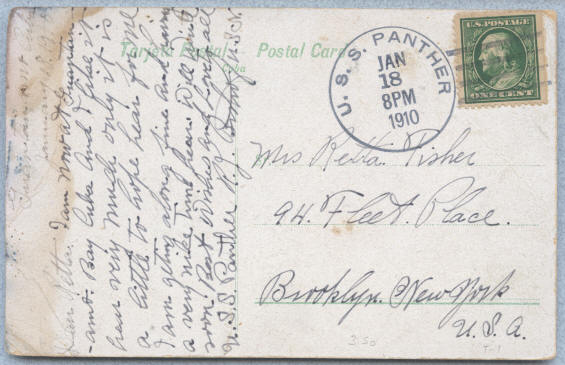 Tarjeta Postal Postal Card
Cuba
U.S.S. PANTHER
JAN
18
8PM
1910
U.S. POSTAGE
ONE CENT
Mrs Retta Fisher
94. Fleet. Place.
Brooklyn. New York
U.S.A.
January 18, 9
Dear Retta. I am now at Guant
-amo. Bay Cuba and I like it
hear very much only it is
a little to hope hear for me
I am geting along fine and having
a very nice time hear. Will write
soon. Best Wishes and Love to all
U.S.S. Panther
3.50